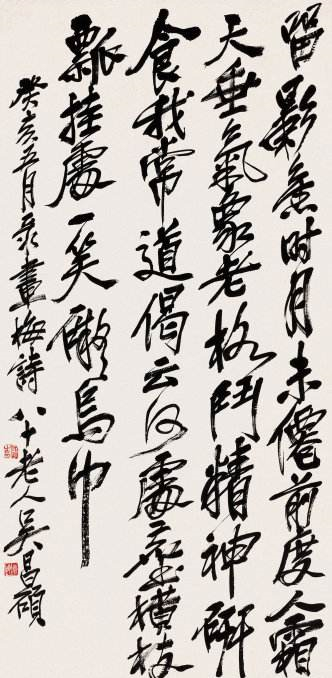 留影舊時月未僊前度人霜
天垂氣象老格鬥精神研
食我常道偈云何處塵橫枝
瓢挂處一笑烏巾
癸亥五月录畫梅詩八十老人吴昌碩